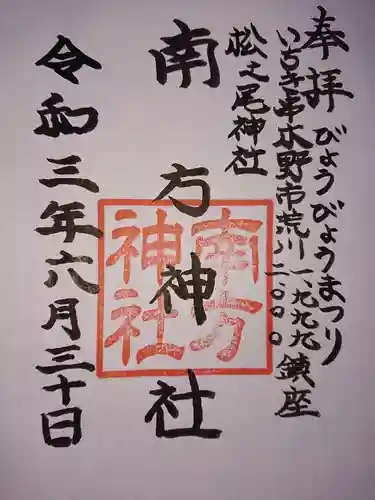 奉拝
びょうびょうまつり
いちき串木野市荒川一九九九鎮座
二〇〇〇
松之尾神社
南方神社
南方
神社
令和三年六月三十日